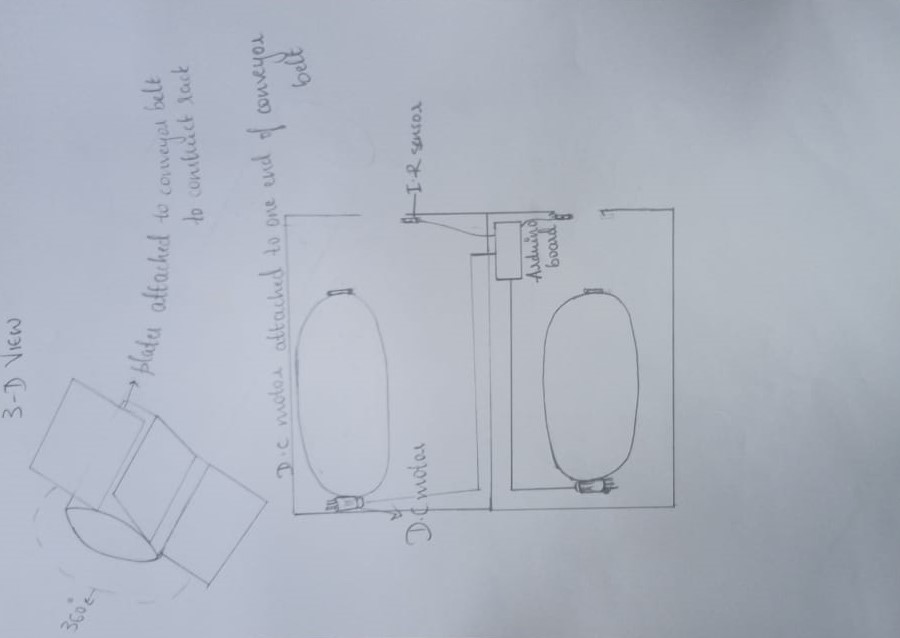 3-D VIEW
360°
plates attached to conveyor belt
to construct rack
D.C motor attached to one end of conveyor
belt
I.R sensor
Arduino
board
D.C motor